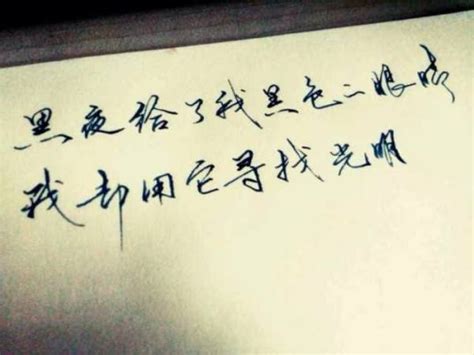 黑夜给了我黑色二眼睛
我却用它寻找光明